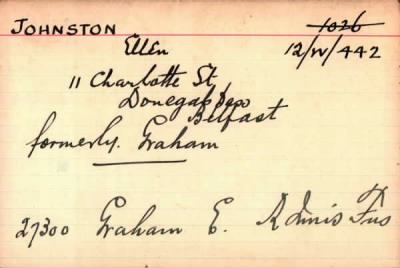 JOHNSTON 1026
Ellen 12/W/442
11 Charlotte St
Donegal Pass
Belfast
formerly. Graham
27300 Graham E. R Innis Fus